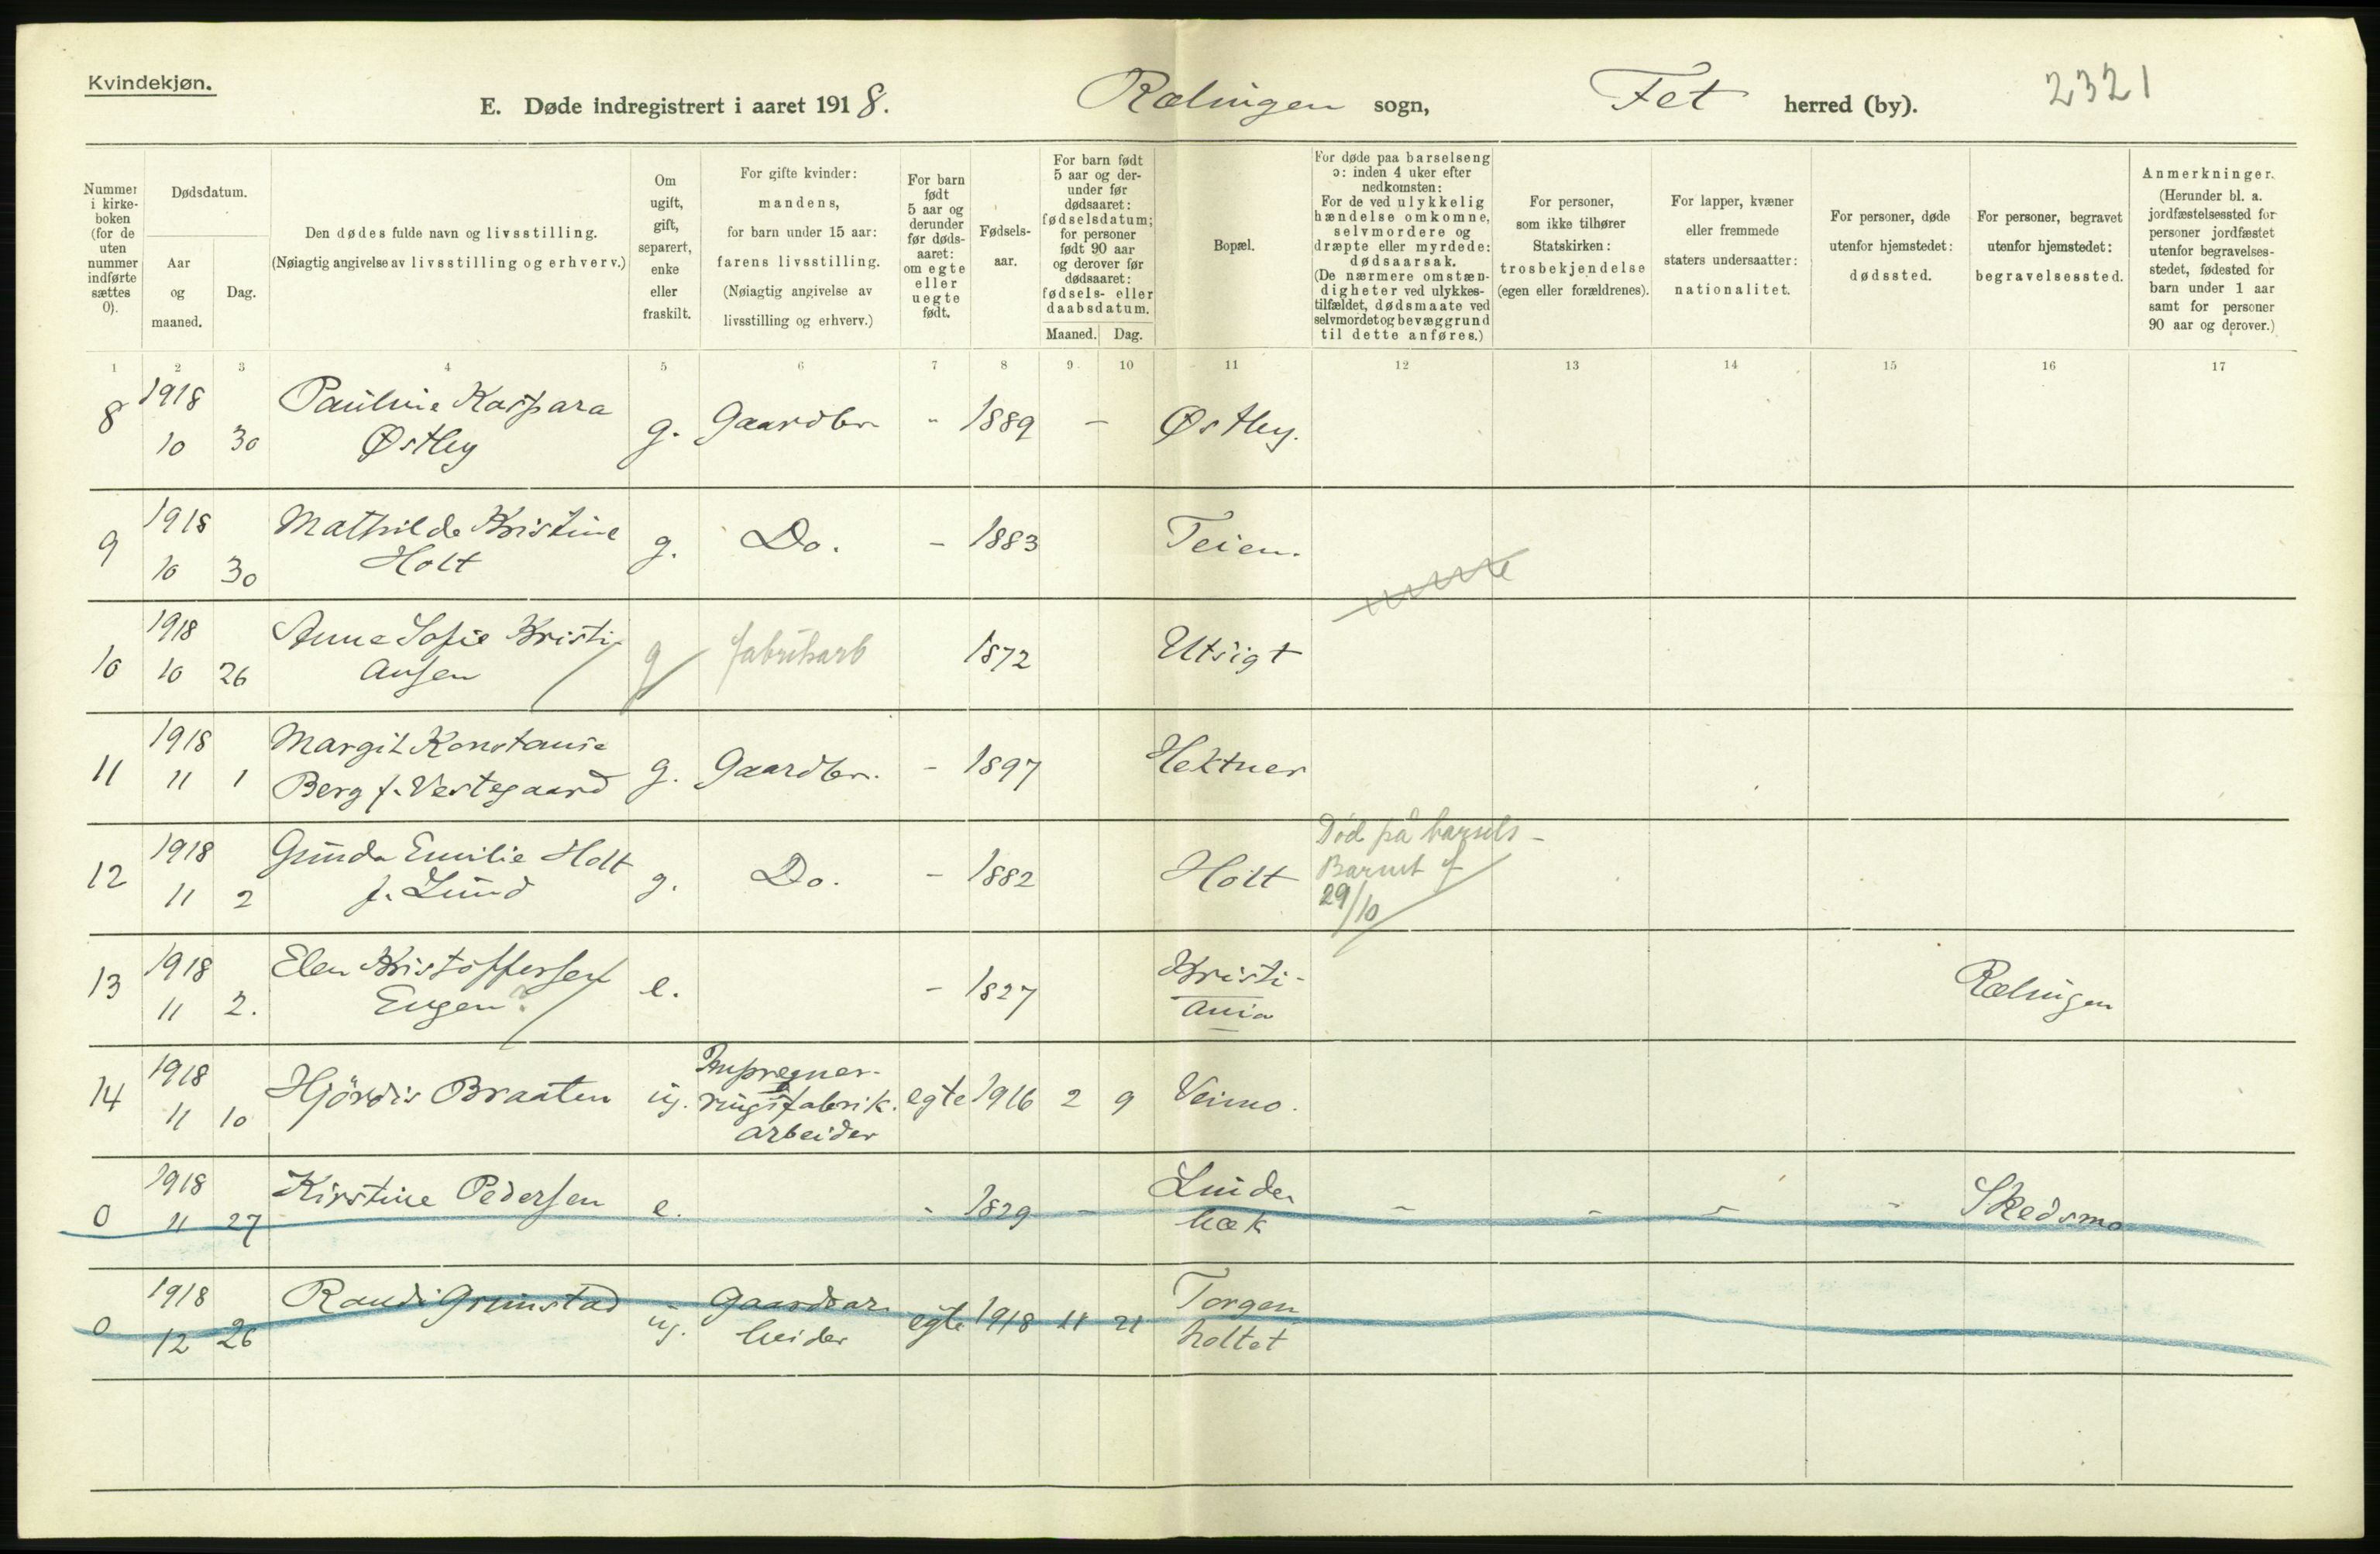 Kvindekjøn.
E. Døde indregistrert i aaret 1918. Rælingen sogn, Fet herred (by). 2321
Nummer i kirkeboken (for de uten nummer indførte sættes 0).
Dødsdatum.
Aar og maaned.
Dag.
Den dødes fulde navn og livsstilling.
(Nøiagtig angivelse av livsstilling og erhverv.)
Om ugift, gift, separert, enke eller fraskilt.
For gifte kvinder: mandens, for barn under 15 aar: farens livsstilling. (Nøiagtig angivelse av livsstilling og erhverv.)
For barn født 5 aar og derunder før dødsaaret: om egte eller uegte født.
Fødselsaar.
For barn født 5 aar og derunder før dødsaaret: fødselsdatum; for personer født 90 aar og derover før dødsaaret: fødsels- eller daabsdatum.
Maaned. Dag.
Bopæl.
For døde paa barselseng ɔ: inden 4 uker efter nedkomsten: For de ved ulykkelig hændelse omkomne, selvmordere og dræpte eller myrdede: dødsaarsak. (De nærmere omstændigheter ved ulykkestilfældet, dødsmaate ved selvmordet og bevæggrund til dette anføres.)
For personer, som ikke tilhører Statskirken: trosbekjendelse (egen eller forældrenes).
For lapper, kvæner eller fremmede staters undersaatter: nationalitet.
For personer, døde utenfor hjemstedet: dødssted.
For personer, begravet utenfor hjemstedet: begravelsessted.
Anmerkninger. (Herunder bl. a. jordfæstelsessted for personer jordfæstet utenfor begravelsesstedet, fødested for barn under 1 aar samt for personer 90 aar og derover.)
1 2 3 4 5 6 7 8 9 10 11 12 13 14 15 16 17
8 1918 10 30 Pauline Kaspara Østby g. Gaardbr. - 1889 - Østby.
9 1918 10 30 Mathilde Kristine Holt g. Do. - 1883 Teien.
10 1918 10 26 Anne Sofie Kristiansen g fabrikarb 1872 Utsigt
11 1918 11 1 Margit Konstanse Berg f. Vestegaard g. Gaardbr. - 1897 Hektner
12 1918 11 2 Gunda Emilie Holt f. Lund g. Do. - 1882 Holt Død på barsels- Barnet f 29/10
13 1918 11 2. Elen Kristoffersen Eugen? e. - 1827 Kristiania Rælingen
14 1918 11 10 Hjördis Braaten ug. Impregneringsfabrik. arbeider egte 1916 2 9 Veimo.
0 1918 11 27 Kirstine Pedersen e. - 1829 - Lindebæk - - - - Skedsmo
0 1918 12 26 Randi Grimstad ug. Gaardsarbeider egte 1918 11 21 Torgenholtet